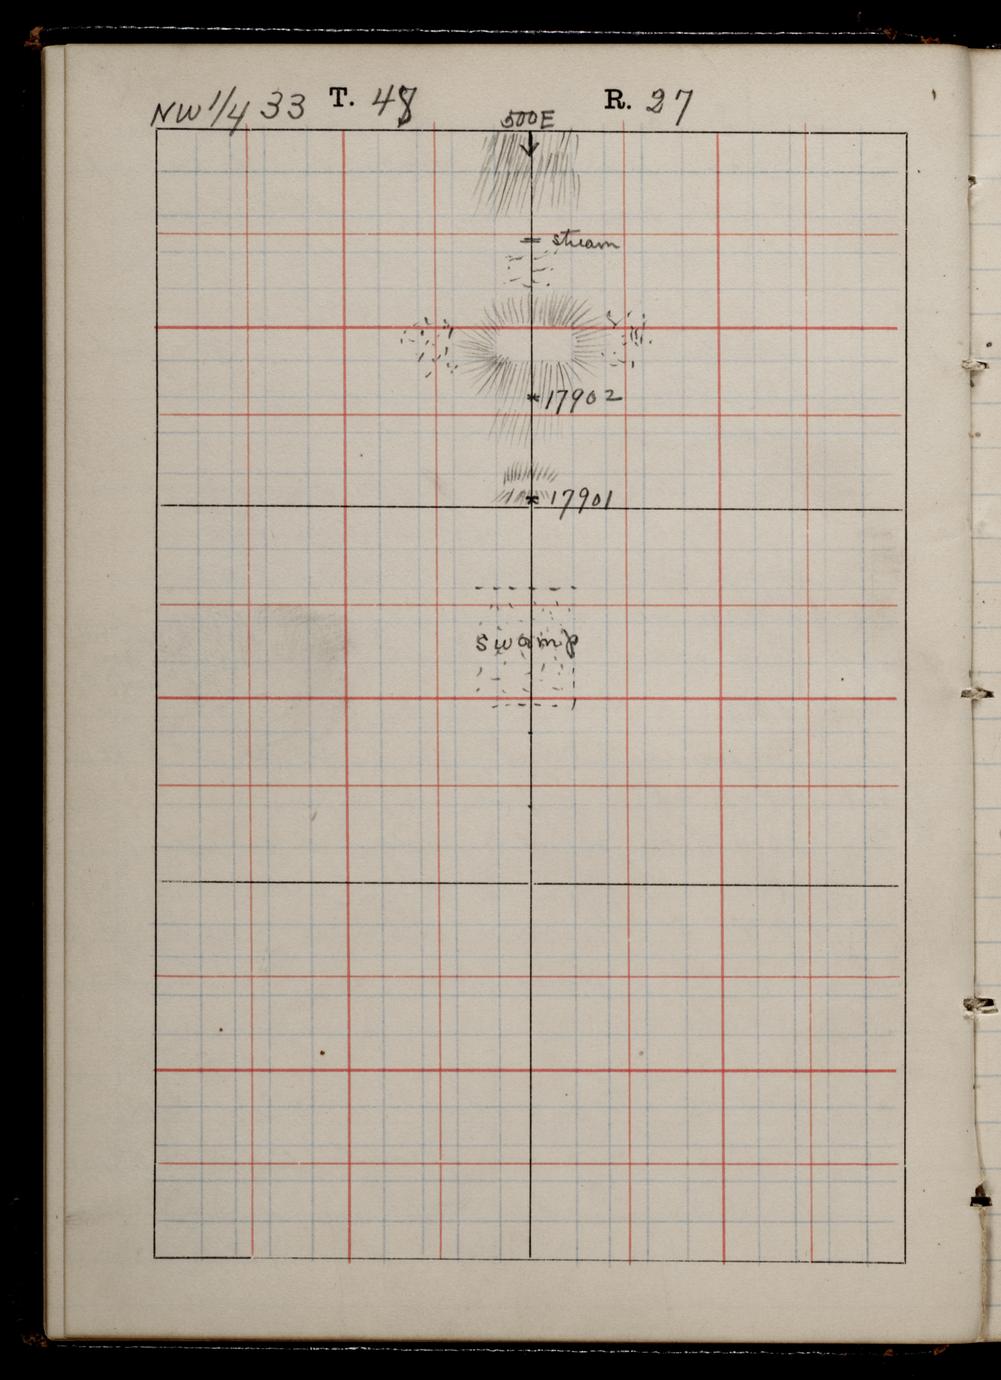 NW 1/4 33 T. 48 R. 27
500E
stream
17902
17901
swamp